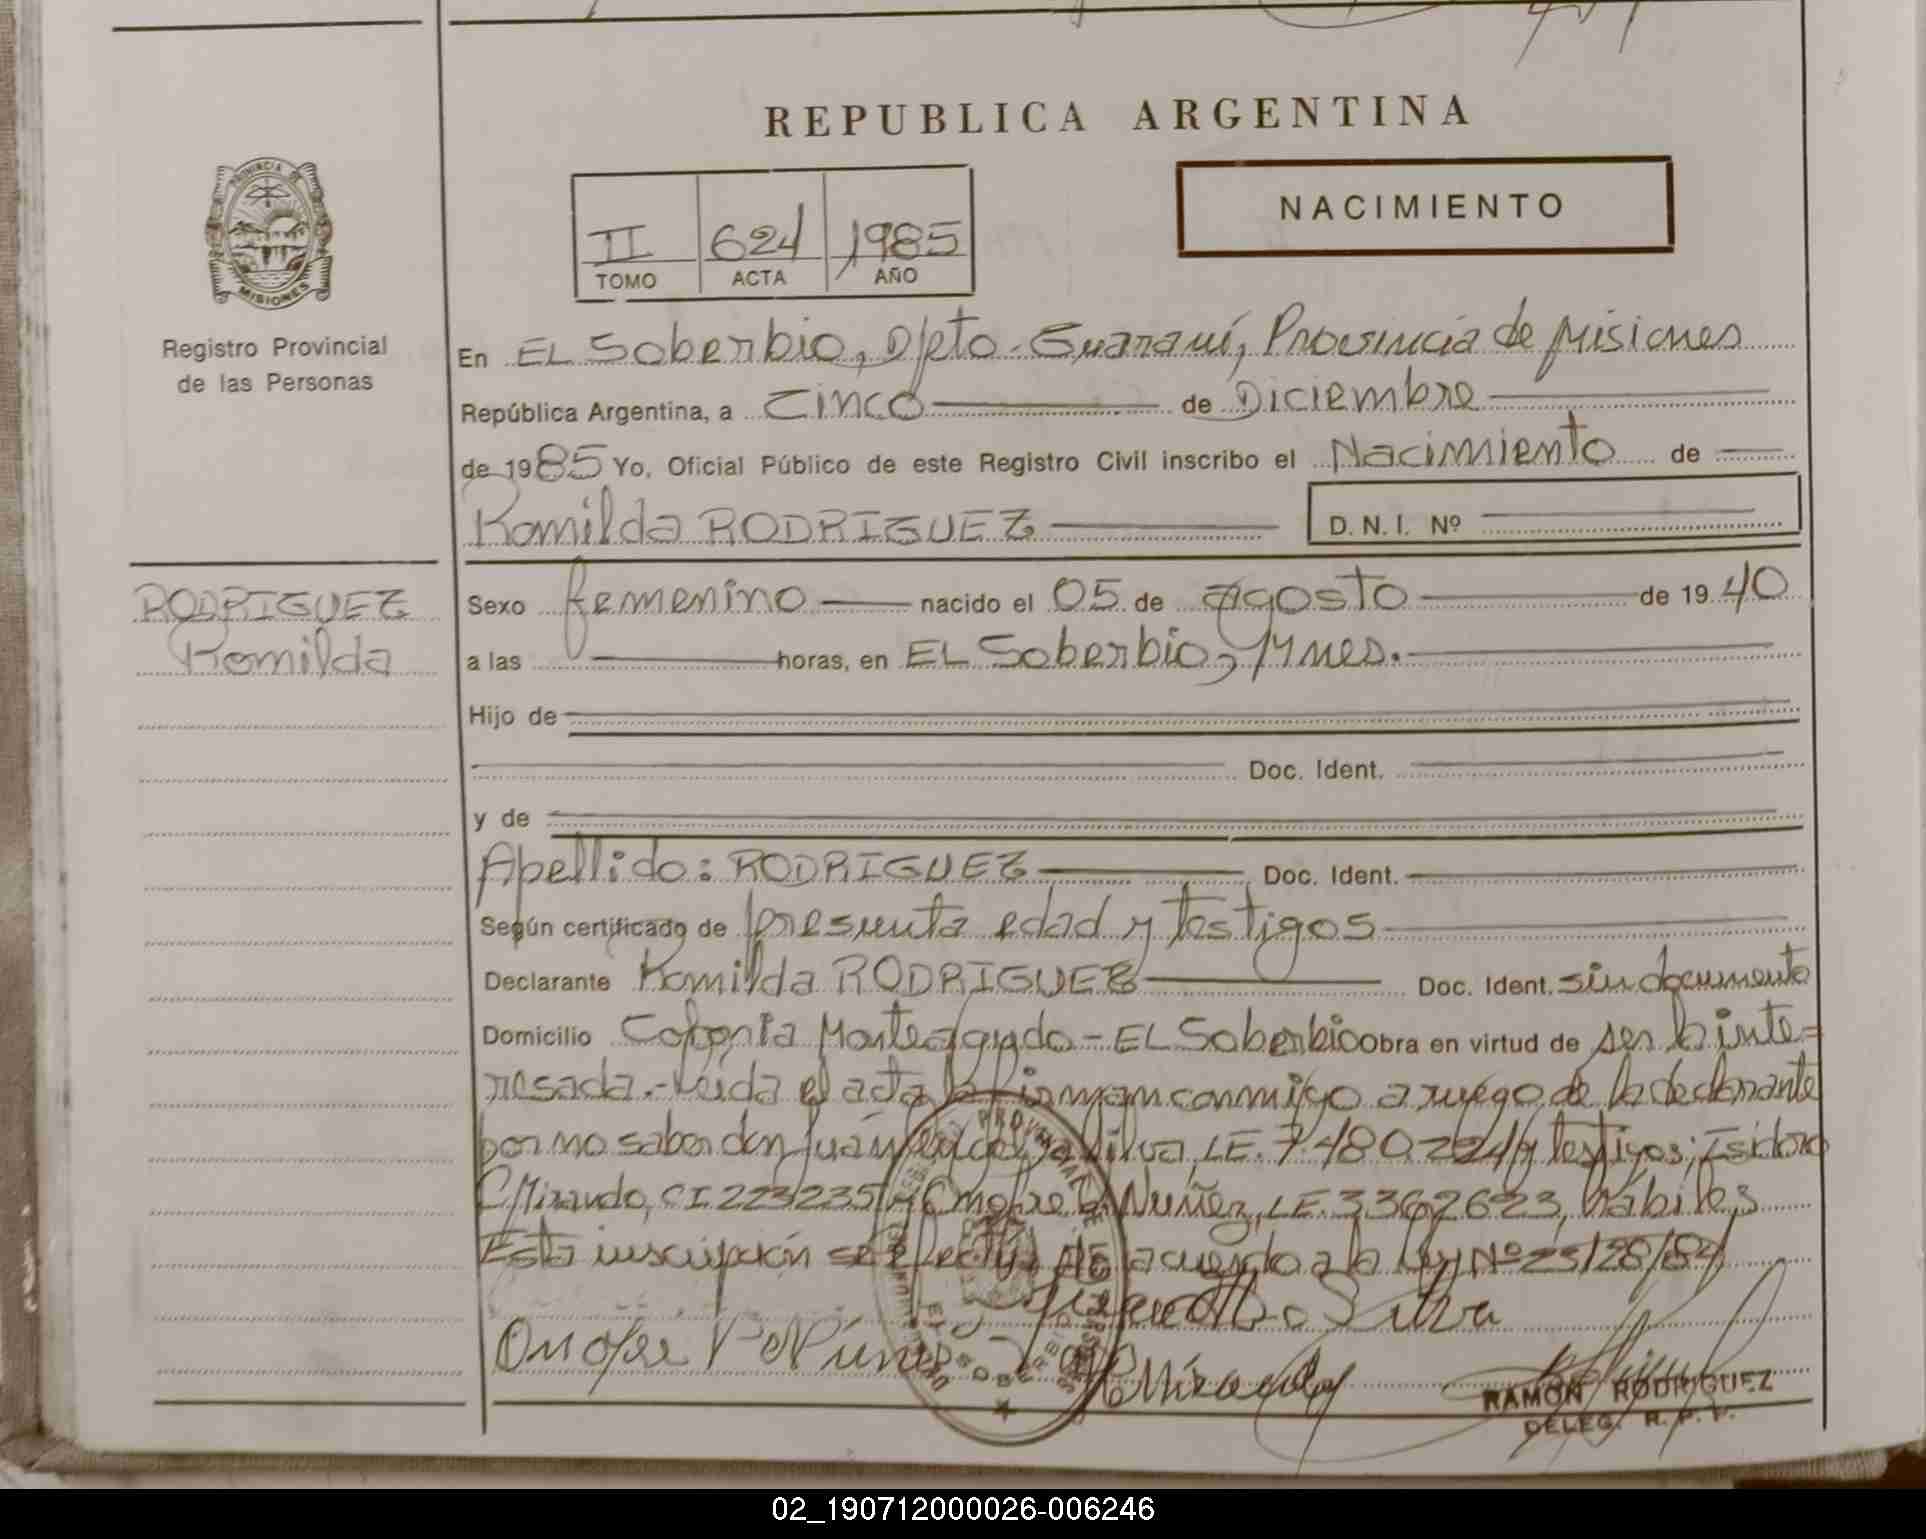 REPUBLICA ARGENTINA
PROVINCIA DE
MISIONES
Registro Provincial
de las Personas
II 624 1985
TOMO ACTA AÑO
NACIMIENTO
En EL Soberbio, Dpto. Guaraní, Provincia de Misiones
República Argentina, a Cinco de Diciembre
de 1985 Yo, Oficial Público de este Registro Civil inscribo el Nacimiento de
Romilda RODRIGUEZ D.N.I. Nº
RODRIGUEZ
Romilda
Sexo femenino nacido el 05 de agosto de 1940
a las horas, en EL Soberbio, Mnes.
Hijo de
Doc. Ident.
y de
Apellido: RODRIGUEZ Doc. Ident.
Según certificado de presunta edad y testigos
Declarante Romilda RODRIGUEZ Doc. Ident. sin documento
Domicilio Colonia Monteagudo - EL Soberbio obra en virtud de ser la inte=
resada.- Leida el acta la firman conmigo a ruego de la declarante
por no saber don Juan Silva, LE. 7.480.224 y testigos; Isidoro
C. Miranda, CI 223235 y Onofre Nuñez, LE. 3362623, hábiles
Esta inscripción se efectua de acuerdo a la Ley Nº 23128/84
Silva
Onofre
Miranda
RAMON RODRIGUEZ
DELEG. R. P. P.
02_190712000026-006246